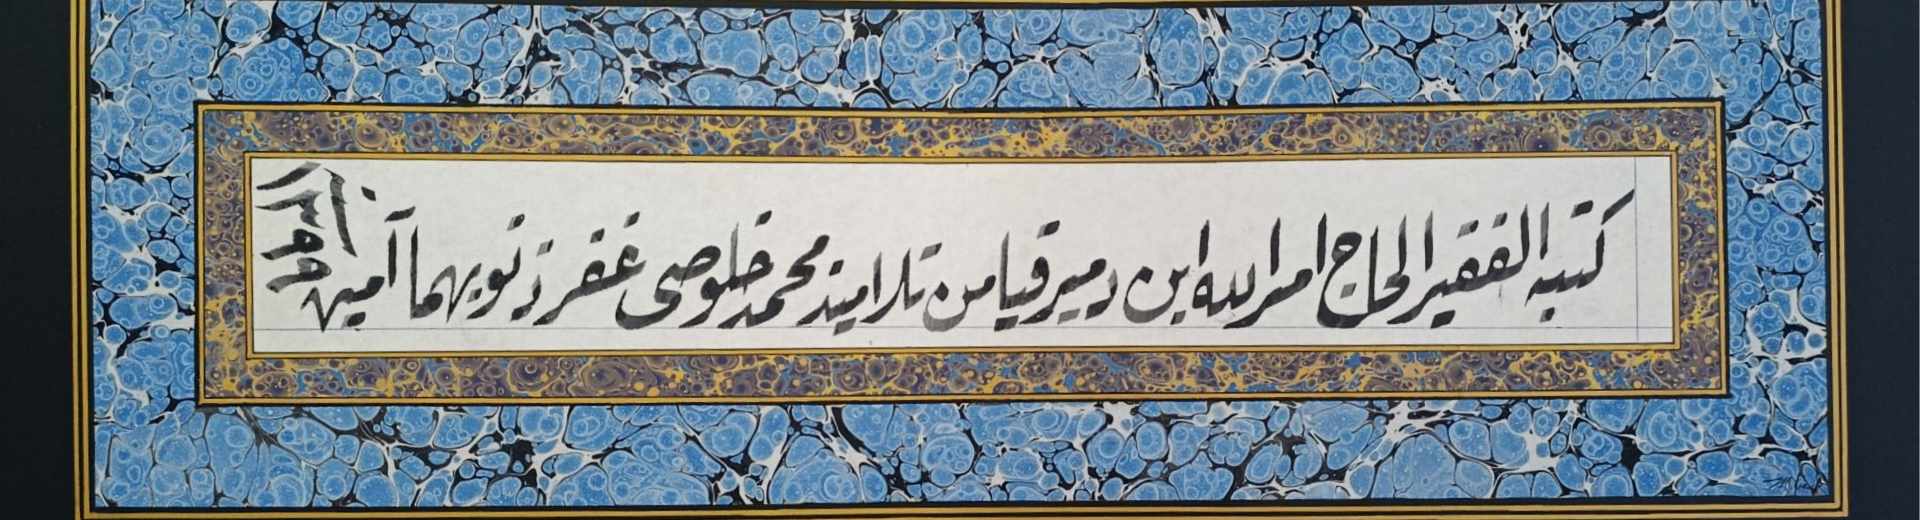 كتبه الفقير الحاج امر الله ابن دميرقيا من تلاميذ محمد خلوصى غفر ذنوبهما آمين